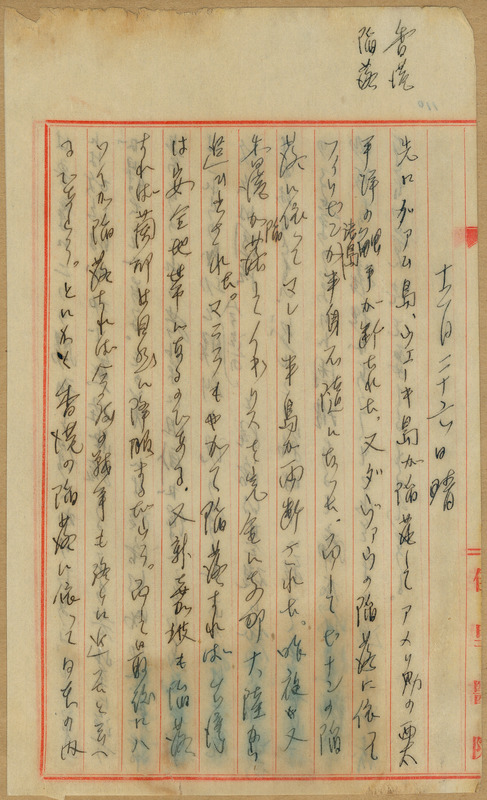 香港
陥落
十二月二十六日 晴
先にグアム島、ウェーキ島が陥落してアメリカの西太
平洋の 事が断たれた。又ダヴァウの陥落に依って
フィリッピン諸島が半身不随になった。而してペナンの陥
落に依ってマレー半島が両断された。昨夜は又
香港が陥落してイギリスを完全に支那大陸から
追ひ出された。マニラもやがて陥落すれば台湾
は安全地帯にあるのである。又新嘉坡も陥落
すれば蘭印は自然に降服するだらう。而して最後にハ
ワイが陥落すれば今度の戦争も終りに近 と云へ
るであらう。とにかく香港の陥落に依って日本の内